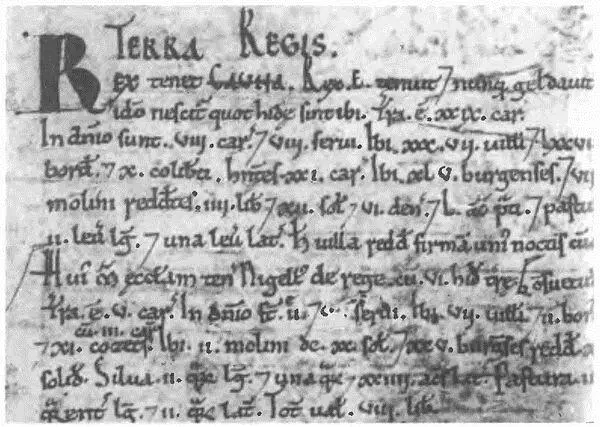 TERRA REGIS.
REX tenet CAUNA. Rex. E. tenuit 7 nunq̄ geldauit
ido nescit̄ quot hidę sint ibi. Tr̄a. ē. xxix. car̄.
In dn̄io sunt. viii. car̄. 7 viii. serui. Ibi. xxx. vii. uilli 7 lxxvi
bord̄. 7 x. colib̄ti. hn̄tes. xxi. car̄. Ibi. xl. v. burgenses. 7 vii
molini redd̄tes. iiii. lib̄. 7 xii. sol̄. 7 vi. den̄. 7 l. āc p̄ti. 7 pastu
ii. leū lḡ. 7 una leū lat̄. H̄ uilla redd̄ firmā uni' noctis cū
Hui' M̄ eccl̄am ten̄ Nigell' de rege. cū. vi. hid̄ træ.
Tr̄a. ē. v. car̄. In dn̄io st̄. ii. 7 serui. Ibi. vii. uilli. 7 ii. bor
7 xi. cozets cū. iii. car̄. Ibi. ii. molini de. xx. sol̄. 7 xxv. burḡses redd̄
solid̄. Silua. ii. q̄z lḡ. 7 una q̄z 7 xxiiii. ac̄s lat̄. Pastura.
q̄rent̄ lḡ. 7 ii. q̄z lat̄. Tot̄ ual̄. viii. lib̄.